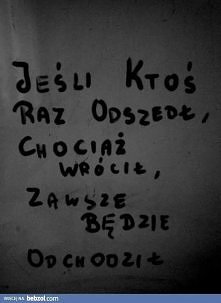 JEŚLI KTOŚ
RAZ ODSZEDŁ,
CHOCIAŻ
WRÓCIŁ,
ZAWSZE
BĘDZIE
ODCHODZIŁ
WIĘCEJ NA bebzol.com